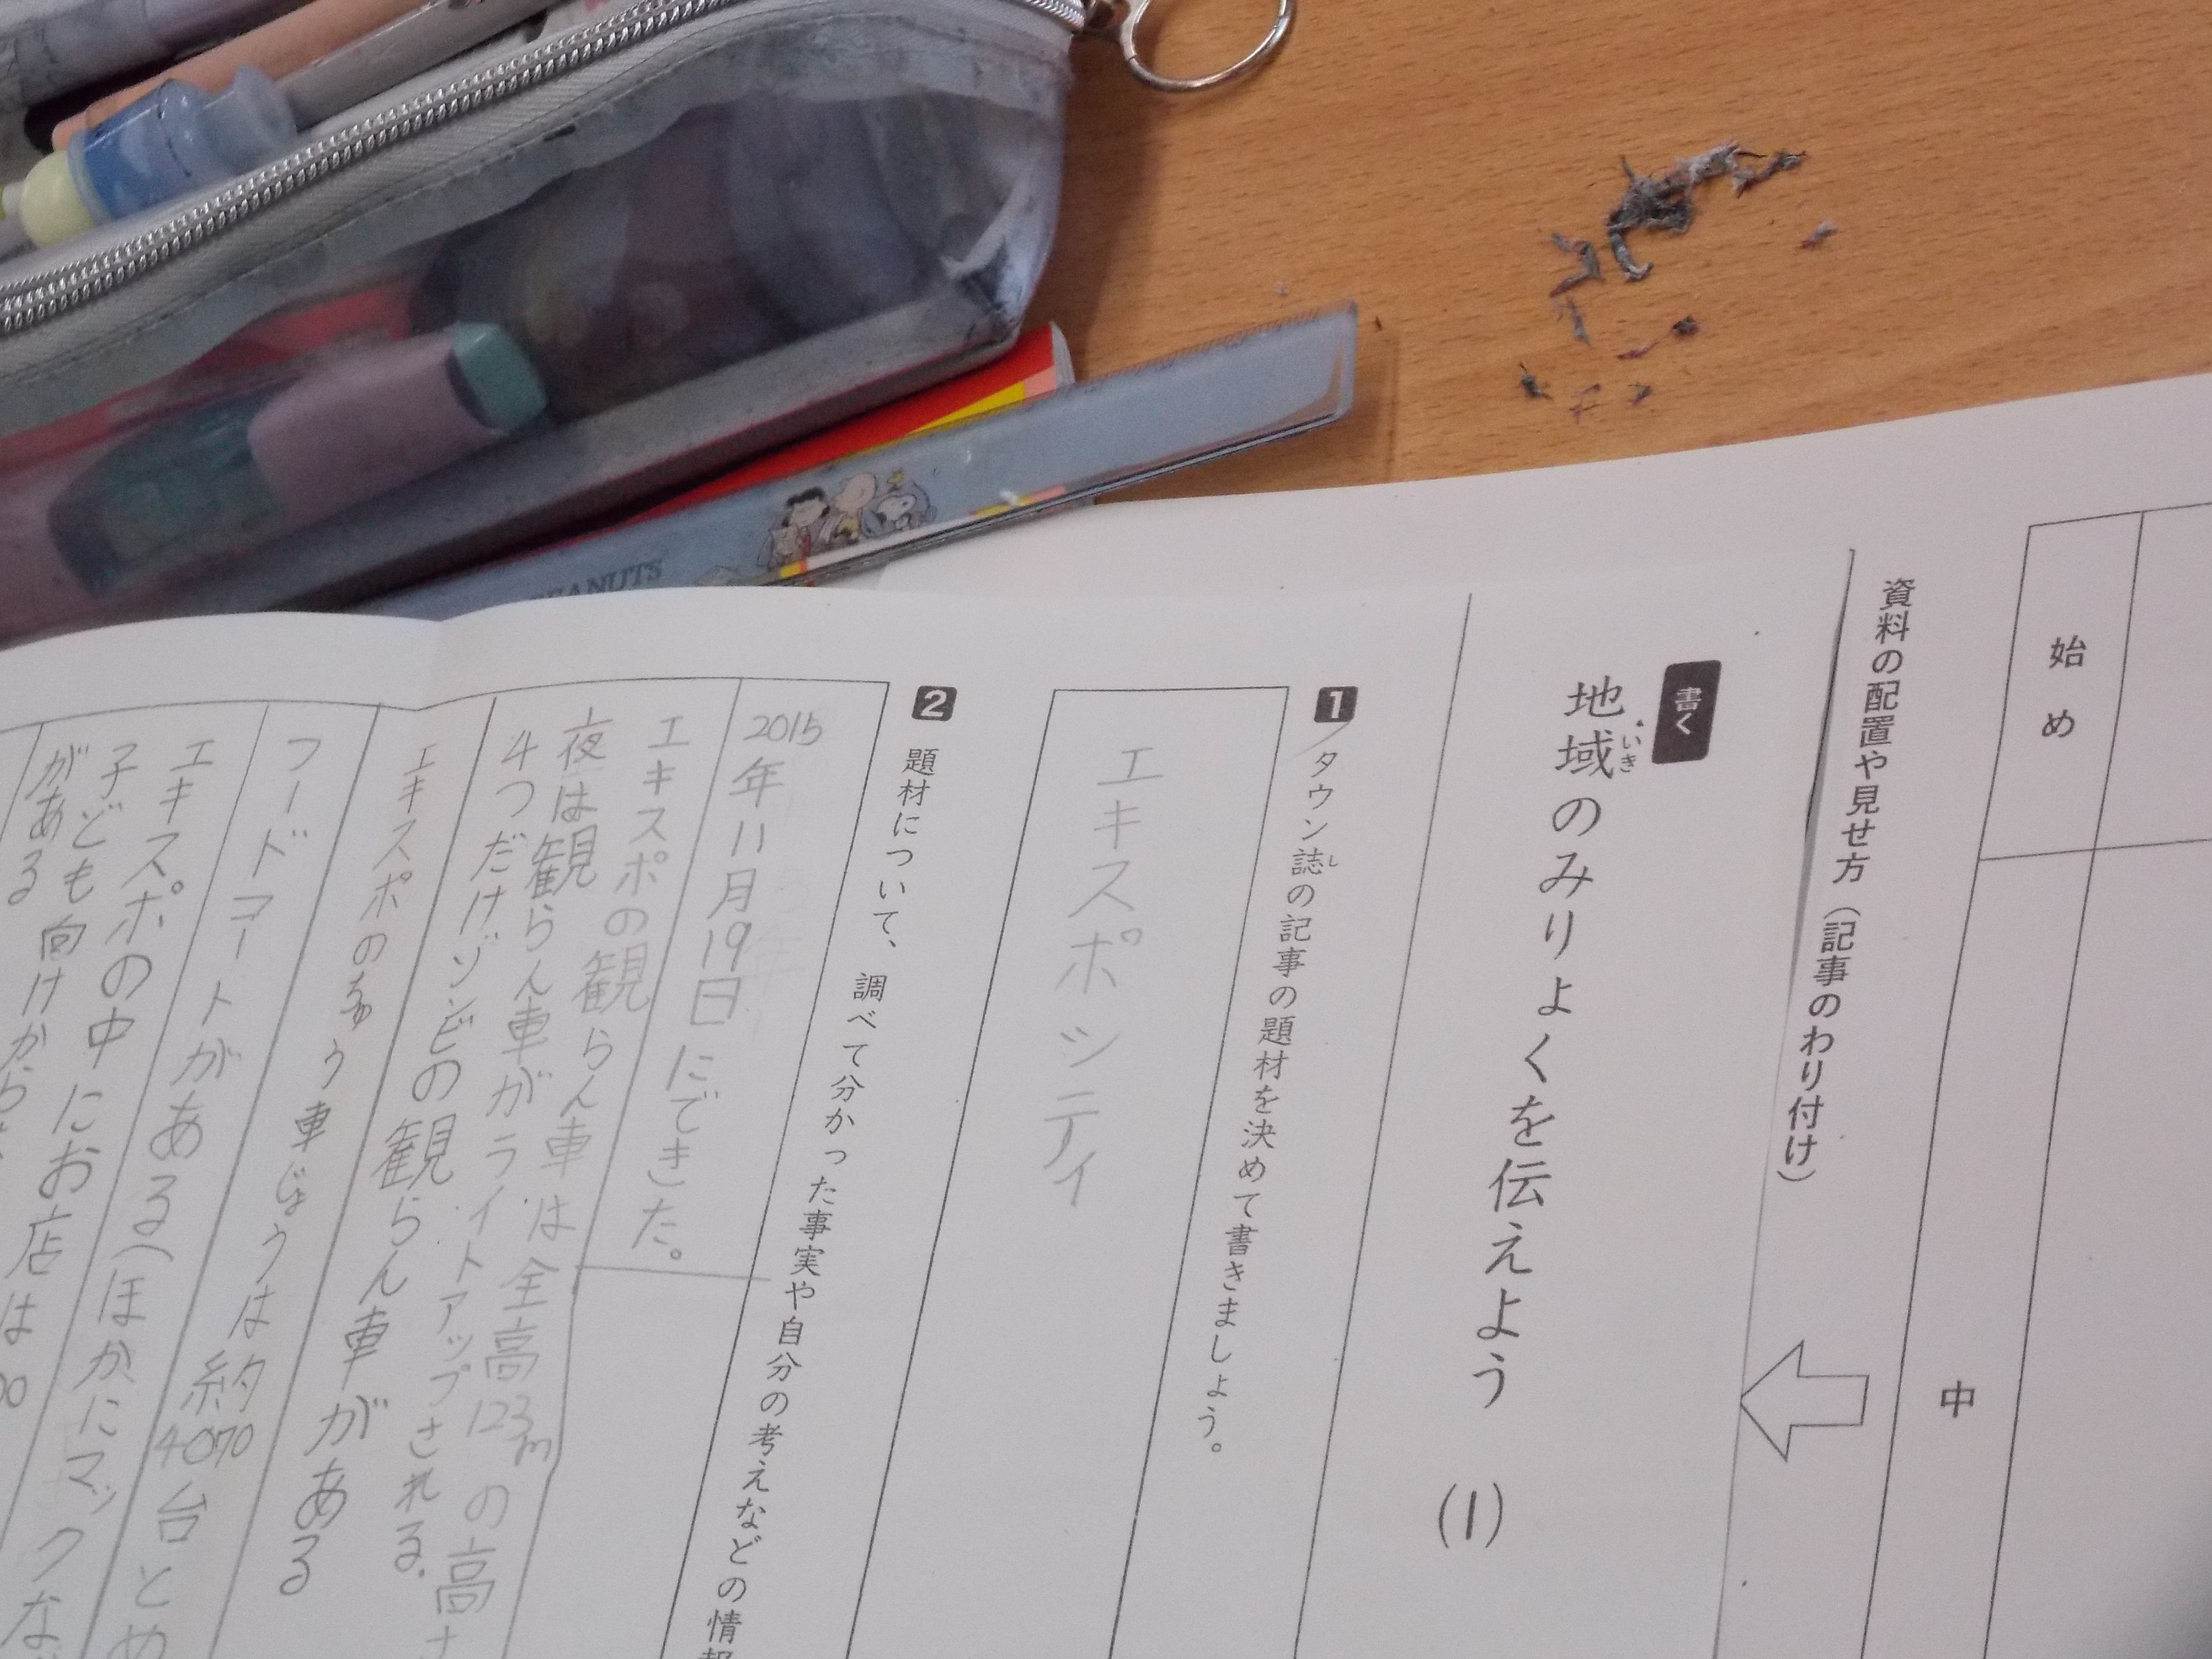 始め
中
資料の配置や見せ方（記事のわり付け）
書く
地域のみりょくを伝えよう (1)
いき
1 タウン誌の記事の題材を決めて書きましょう。
し
エキスポシティ
2 題材について、調べて分かった事実や自分の考えなどの情報
2015年11月19日にできた。
エキスポの観らん車は全高123mの高さ
夜は観らん車がライトアップされる.
4つだけゾンビの観らん車がある
エキスポのちゅう車じょうは約4070台とめ
フードコートがある(ほかにマックな
エキスポの中にお店は
子ども向けから
がある
PEANUTS